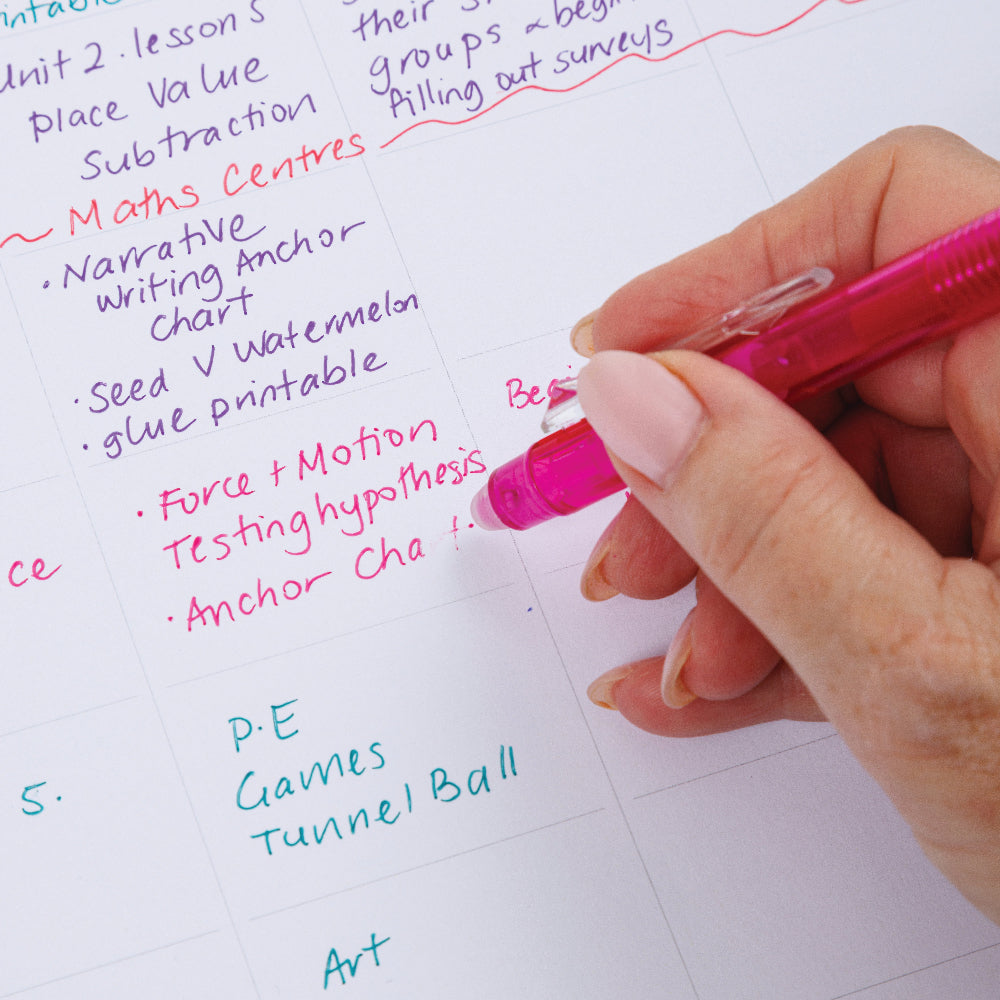 Unit 2 . lesson 5
Place Value
Subtraction
~ Maths Centres
• Narrative
Writing Anchor
Chart
• Seed V Watermelon
• glue printable
• Force + Motion
Testing hypothesis
• Anchor Cha t.
P.E
Games
Tunnel Ball
Art
their
groups & begin
filling out surveys
ce
5.